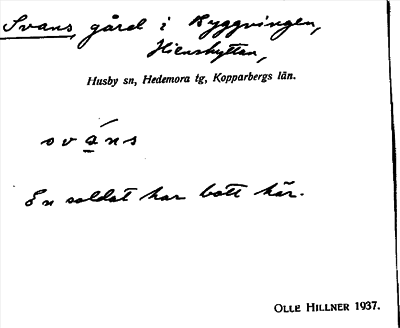 Svans, gård i Ryggvingen,
Hienshyttan,
Husby sn, Hedemora tg, Kopparbergs län.
sváns
En soldat har bott här.
OLLE HILLNER 1937.